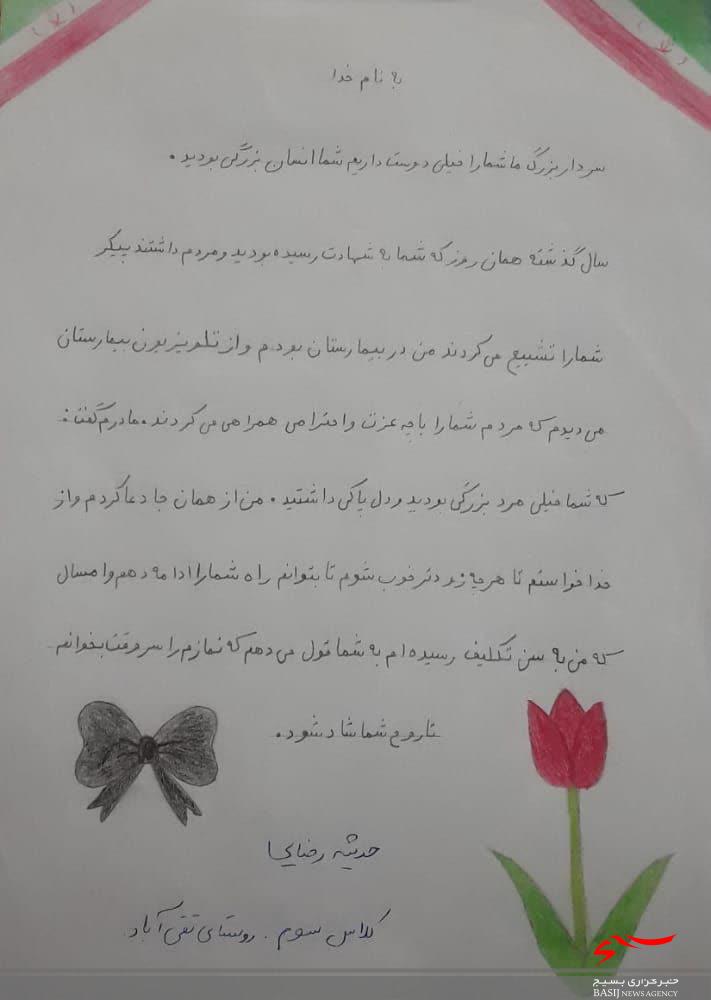 به نام خدا
سردار بزرگ ما شما را خیلی دوست داریم شما انسان بزرگی بودید.
سال گذشته همان روز که شما به شهادت رسیده بودید و مردم داشتند پیکر
شما را تشییع می کردند من در بیمارستان بودم و از تلویزیون بیمارستان
می دیدم که مردم شما را با چه عزت و احترامی همراهی می کردند. مادرم گفت:
که شما خیلی مرد بزرگی بودید و دل پاکی داشتید. من از همان جا دعا کردم و از
خدا خواستم تا هر چه زودتر خوب شوم تا بتوانم راه شما را ادامه دهم و امسال
که من به سن تکلیف رسیده ام به شما قول می دهم که نمازم را سر وقت بخوانم
تا روح شما شاد شود.
حدیثه رضایی
کلاس سوم. روستای تقی آباد.
بسیج
خبرگزاری بسیج
BASIJ NEWS AGENCY